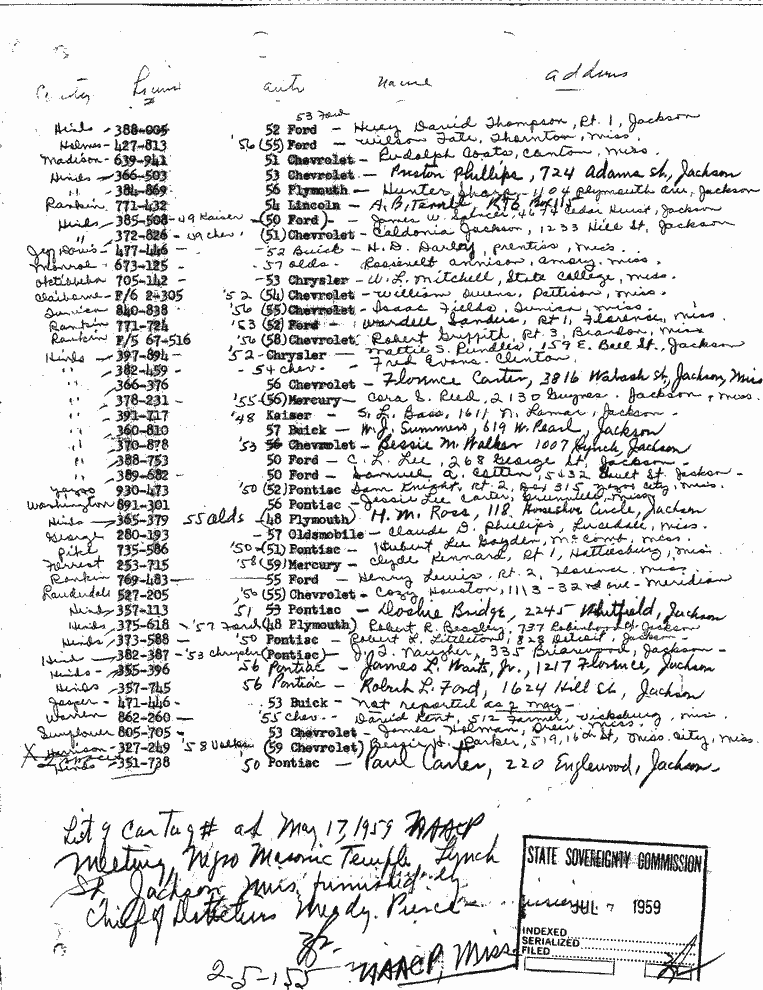 County License auto name address
53 Ford
Hinds - 388-005 52 Ford - Huey David Thompson, Rt. 1, Jackson
Holmes - 427-813 '56 (55) Ford - Wilson Tate, Thornton, Miss.
Madison - 639-941 51 Chevrolet - Rudolph Coats, Canton, Miss.
Hinds - 366-503 53 Chevrolet - Preston Phillips, 724 Adams St, Jackson
" - 384-869 56 Plymouth - Hunter Sharp - 1104 Plymouth Ave, Jackson
Rankin 771-432 54 Lincoln - A. B. Rt 6 Box 115
Hinds - 385-508 - 49 Kaiser - (50 Ford) - James W. 4674 Cedar Hurst, Jackson
" 372-826 - 49 Chev. (51) Chevrolet - Caldonia Jackson, 1233 Hill St, Jackson
Jeff Davis - 477-446 - '52 Buick - H. D. Darby, Prentiss, Miss.
Monroe - 673-125 - 57 Olds. - Roosevelt Annison, Amory, Miss.
Oktibbeha 705-142 - 53 Chrysler - W. L. Mitchell, State College, Miss.
Claiborne - P/6 2-305 '52 (54) Chevrolet - William Owens, Pattison, Miss.
840-838 '56 (55) Chevrolet - Isaac Fields, Miss.
Rankin 771-724 '53 (52) Ford - Wardell Sanders, Rt 1, Florence, Miss.
Rankin P/5 67-516 '56 (58) Chevrolet Robert Griffith, Rt. 3, Brandon, Miss
Hinds - 397-894 - '52 - Chrysler - Mattie S. Rundles, 159 E. Bell St., Jackson
" - 382-459 - - 54 Chev. - Fred Evans, Clinton.
" 366-376 56 Chevrolet - Florence Carter, 3816 Wabash St, Jackson, Miss
" 378-231 - '55 (56) Mercury - Cora E. Reed, 2130 Guynes. Jackson, Miss.
" 391-717 '48 Kaiser - S. L. Bass, 1611 N. Lamar, Jackson -
" 360-810 57 Buick - W. J. Summers, 619 W. Pearl, Jackson
" 370-878 '53 56 Chevrolet - Bessie M. Walker 1007 Lynch, Jackson
" 388-753 50 Ford - C. L. Lee, 268 George St, Jackson
" 389-682 - 50 Ford - Samuel A. Cotten, 5432 St. Jackson -
Yazoo 930-473 '50 (52) Pontiac Sam Knight, Rt. 2, Box 315 Yazoo City, Miss.
Washington 891-301 56 Pontiac - Jessie Lee Carter, Greenville, Miss
Hinds - 365-379 55 Olds (48 Plymouth) H. M. Ross, 118 Horseshoe Circle, Jackson
George 280-193 - 57 Oldsmobile - Claude D. Phillips, Lucedale, Miss.
Pike 735-586 '50 - (51) Pontiac - Hubert Lee Gayden, McComb, Miss.
Forrest 253-715 '58 (59) Mercury - Clyde Kennard, Rt 1, Hattiesburg, Miss.
Rankin 769-483 55 Ford - Henry Lewis, Rt. 2, Florence, Miss.
Lauderdale 527-205 '50 (55) Chevrolet - Cozy Houston, 1113 - 32nd Ave - Meridian
Hinds 357-113 51 53 Pontiac - Doshie Bridge, 2245 Whitfield, Jackson
Hinds - 375-618 - '57 Ford (48 Plymouth) Robert R. Beasley, 737 Robinhood Jackson
Hinds - 373-588 - '50 Pontiac - Robert L. Littleton, 828 Detroit, Jackson -
Hinds - 382-387 - '53 Chrysler (Pontiac) - J. J. Naugher, 335 Briarwood, Jackson -
Hinds - 355-396 56 Pontiac - James L. Waits, Jr., 1217 Florence, Jackson
Hinds 357-745 56 Pontiac - Robert L. Ford, 1624 Hill St, Jackson
Jasper - 471-446 - 53 Buick - not reported as 2 May -
Warren 862-260 '55 Chev. - David Kent, 512 Farmer, Vicksburg, Miss.
Sunflower 805-705 - 53 Chevrolet - James Holman, Drew, Miss.
X Harrison - 327-249 '58 (59 Chevrolet) Bessie H. Parker, 519, 16th St, Miss. City, Miss.
Hinds 351-738 '50 Pontiac - Paul Carter, 220 Englewood, Jackson
List of Car Tag # at May 17, 1959 NAACP
meeting, Negro Masonic Temple Lynch
St Jackson, Miss, furnished by
Chief of Detectives Meady Pierce
2-5-155 NAACP, Miss.
STATE SOVEREIGNTY COMMISSION
JUL 7 1959
INDEXED
SERIALIZED
FILED